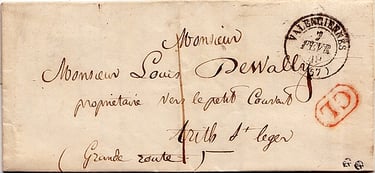 Monsieur
Monsieur Louis Dewally
propriétaire vers le petit Courant
Arith St leger
(Grande route)
VALENCIENNES
FEVR
(57)
CL